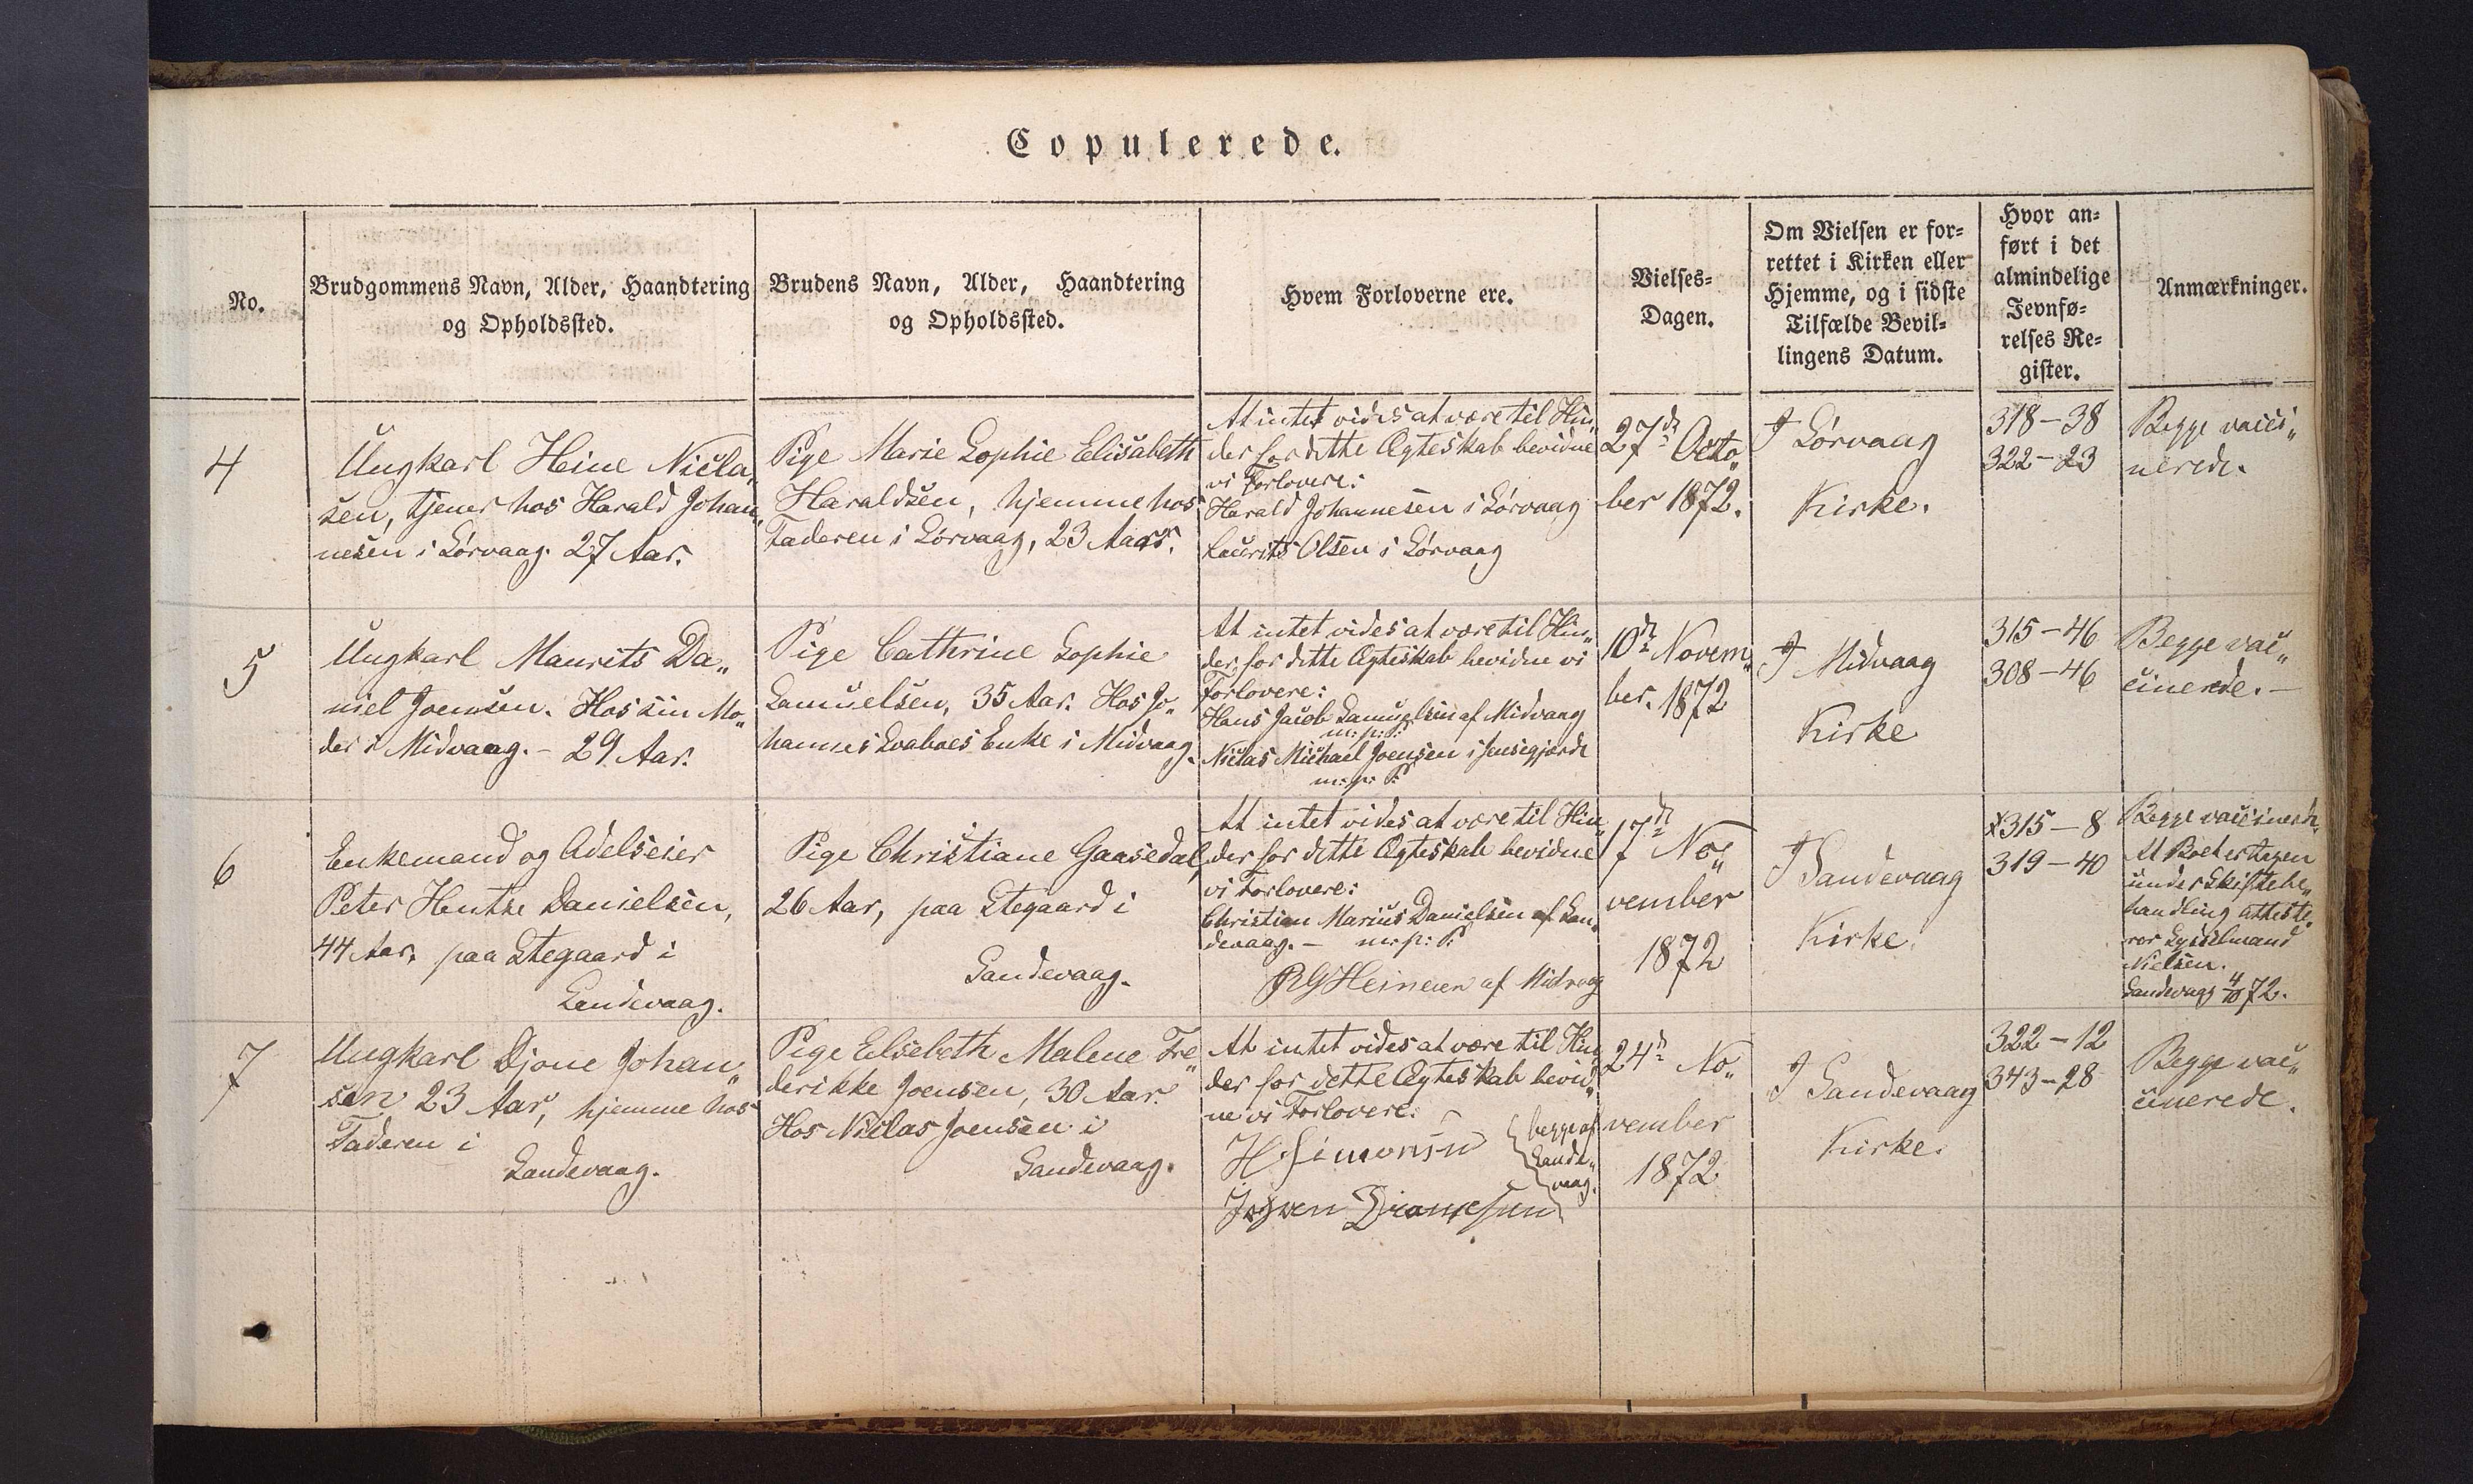 Copulerede.
No.
Brudgommens Navn, Alder, Haandtering
og Opholdssted.
Brudens Navn, Alder, Haandtering
og Opholdssted.
Hvem Forloverne ere.
Vielses-
Dagen.
Om Vielsen er for-
rettet i Kirken eller
Hjemme, og i sidste
Tilfælde Bevil-
lingens Datum.
Hvor an-
ført i det
almindelige
Jevnfø-
relses Re-
gister.
Anmærkninger.
4
Ungkarl Heine Nicla„
sen, tjener hos Harald Johan„
nesen i Sørvaag. 27 Aar.
Pige Marie Sophie Elisabeth
Haraldsen, hjemme hos
Faderen i Sørvaag, 23 Aar.
At intet vides at være til Hin„
der for dette Ægteskab bevidne
vi Forlovere:
Harald Johannesen i Sørvaag
Laurits Olsen i Sørvaag
27de Octo„
ber 1872.
I Sørvaag
Kirke.
318-38
322-23
Begge vacci„
nerede.
5
Ungkarl Maurits Da„
niel Joensen. Hos sin Mo„
der i Midvaag. - 29 Aar.
Pige Cathrine Sophie
Samuelsen, 35 Aar. Hos Jo„
hannes Svaboes Enke i Midvaag.
At intet vides at være til Hin„
der for dette Ægteskab bevidne vi
Forlovere:
Hans Jacob Samuelsen af Midvaag
m: p: P:
Niclas Michael Joensen i Jensegjærde
m: p: P:
10de Novem„
ber. 1872
I Midvaag
Kirke
315-46
308-46
Begge vac„
cinerede. -
6
Enkemand og Odelseier
Peter Hentze Danielsen,
44 Aar, paa Stegaard i
Sandevaag.
Pige Christiane Gaasedal,
26 Aar, paa Stegaard i
Sandevaag.
At intet vides at være til Hin„
der for dette Ægteskab bevidne
vi Forlovere:
Christian Marius Danielsen af San„
devaag. - m: p: P:
Heinesen af Midvaag
17de No„
vember
1872
I Sandevaag
Kirke.
315-8
319-40
Begge vaccinerede.
At Boet er tagen
under Skiftebe„
handling atteste„
rer Sysselmand
Nielsen.
Sandevaag 4/10 72.
7
Ungkarl Djone Johan„
sen 23 Aar, hjemme hos
Faderen i
Sandevaag.
Pige Elsebeth Malene Fre„
derikke Joensen, 30 Aar.
Hos Niclas Joensen i
Sandevaag.
At intet vides at være til Hin„
der for dette Ægteskab bevid„
ne vi Forlovere:
H Simonsen
begge af
Sande„
vaag.
24de No„
vember
1872
I Sandevaag
Kirke.
322-12
343-28
Begge vac„
cinerede.